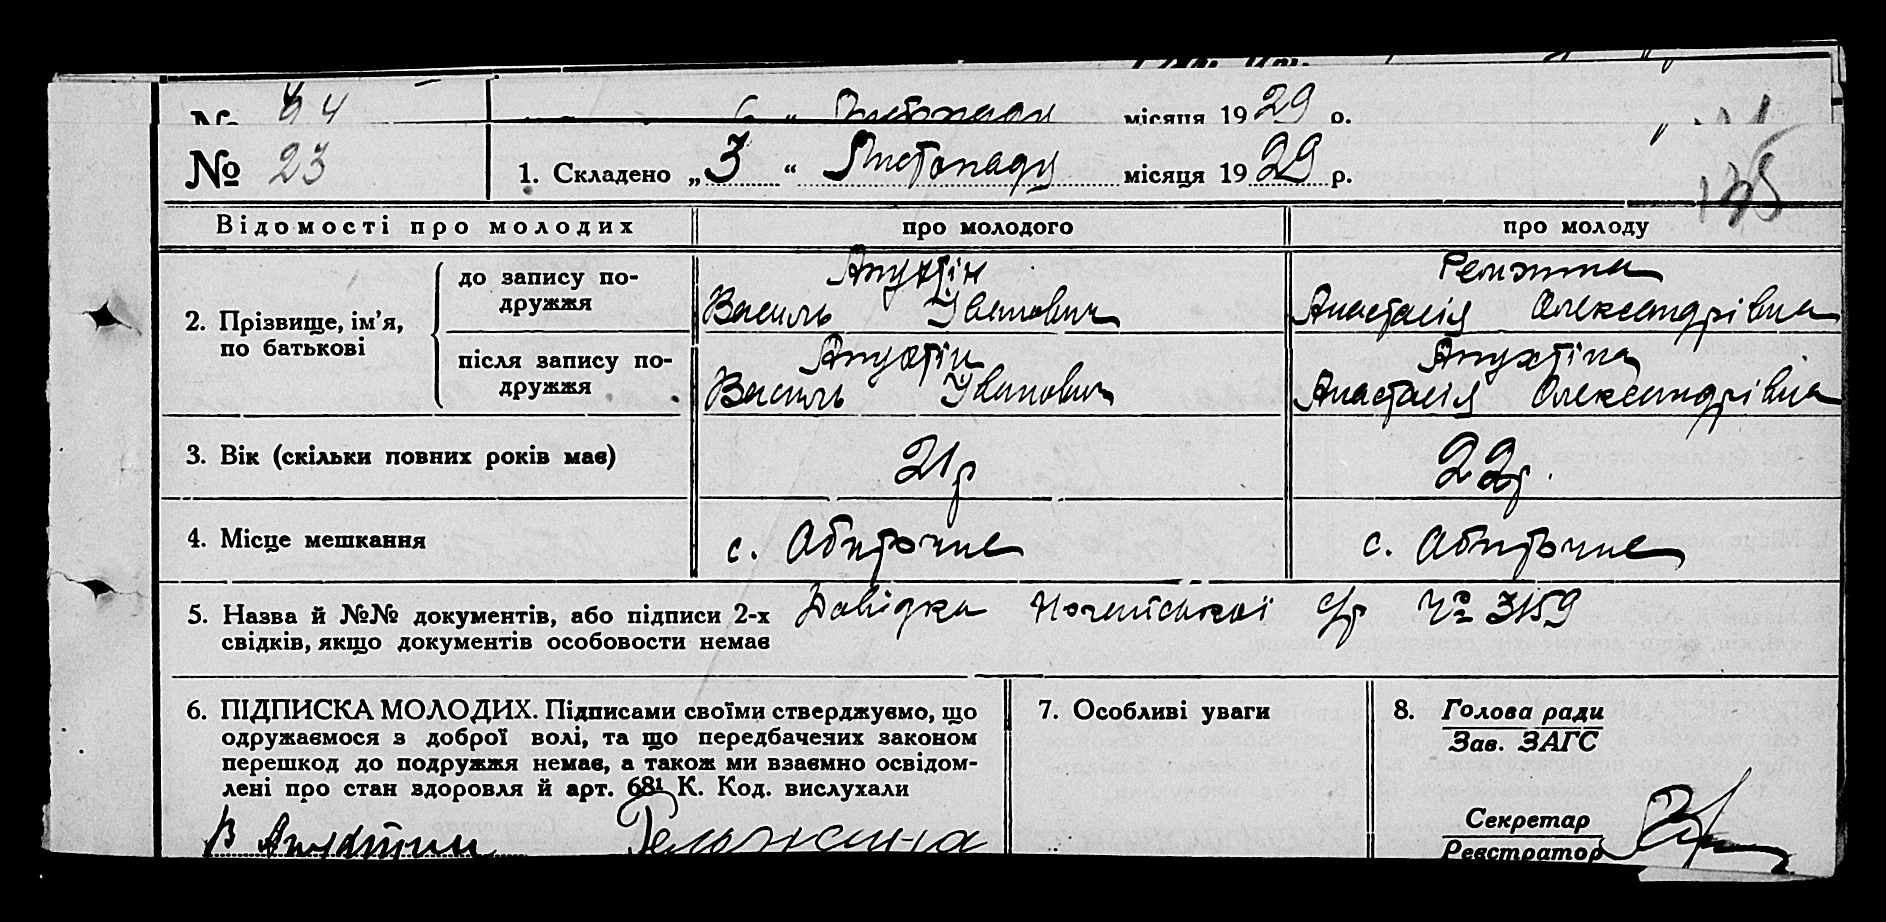 № 24 6 " Листопаду місяця 1929 р.
№ 23 1. Складено „3“ Листопаду місяця 1929 р.
135
Відомості про молодих про молодого про молоду
2. Прізвище, ім'я, по батькові
до запису подружжя
Апухтін
Василь Іванович
Анастасія Олександрівна
після запису подружжя
Апухтін
Василь Іванович
Апухтіна
Анастасія Олександрівна
3. Вік (скільки повних років має) 21 р 22 р.
4. Місце мешкання с. Обиточне с. Обиточне
5. Назва й №№ документів, або підписи 2-х Довідка Ногайської с/р № 3159
свідків, якщо документів особовости немає
6. ПІДПИСКА МОЛОДИХ. Підписами своїми стверджуємо, що
одружаємося з доброї волі, та що передбачених законом
перешкод до подружжя немає, а також ми взаємно освідом-
лені про стан здоровля й арт. 681 К. Код. вислухали
В Апухтин
7. Особливі уваги
8. Голова ради
Зав. ЗАГС
Секретар
Реєстратор